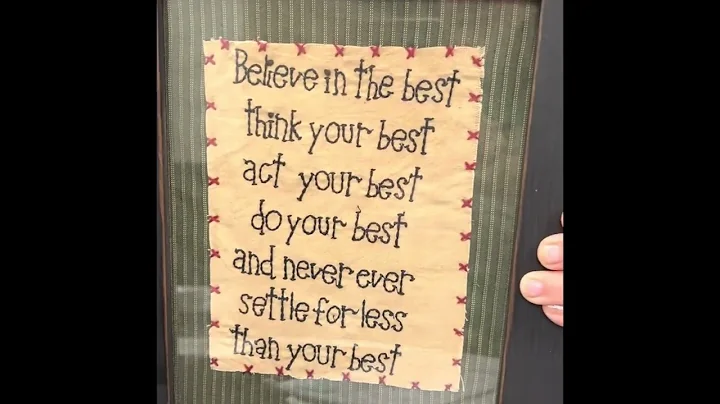 Believe in the best
think your best
act your best
do your best
and never ever
settle for less
than your best